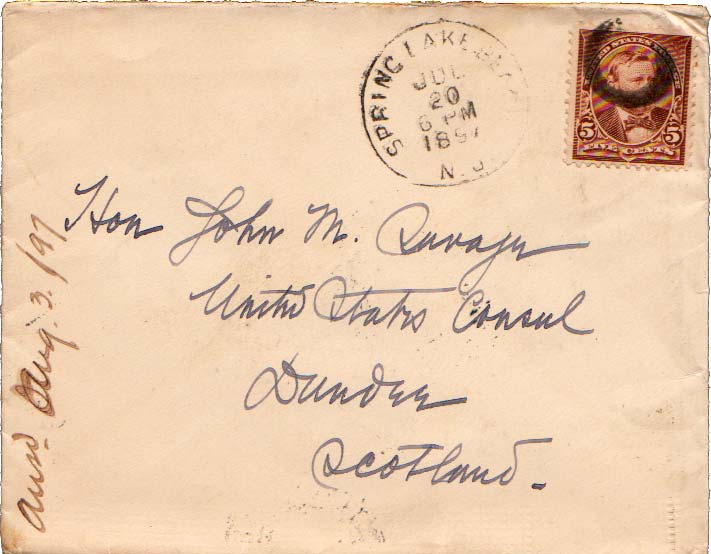 SPRING LAKE BEACH
JUL
20
6 PM
1897
N.J.
UNITED STATES
5 5
FIVE CENTS
Hon John M. Savage
United States Consul
Dundee
Scotland.
Ansd Aug. 3./97